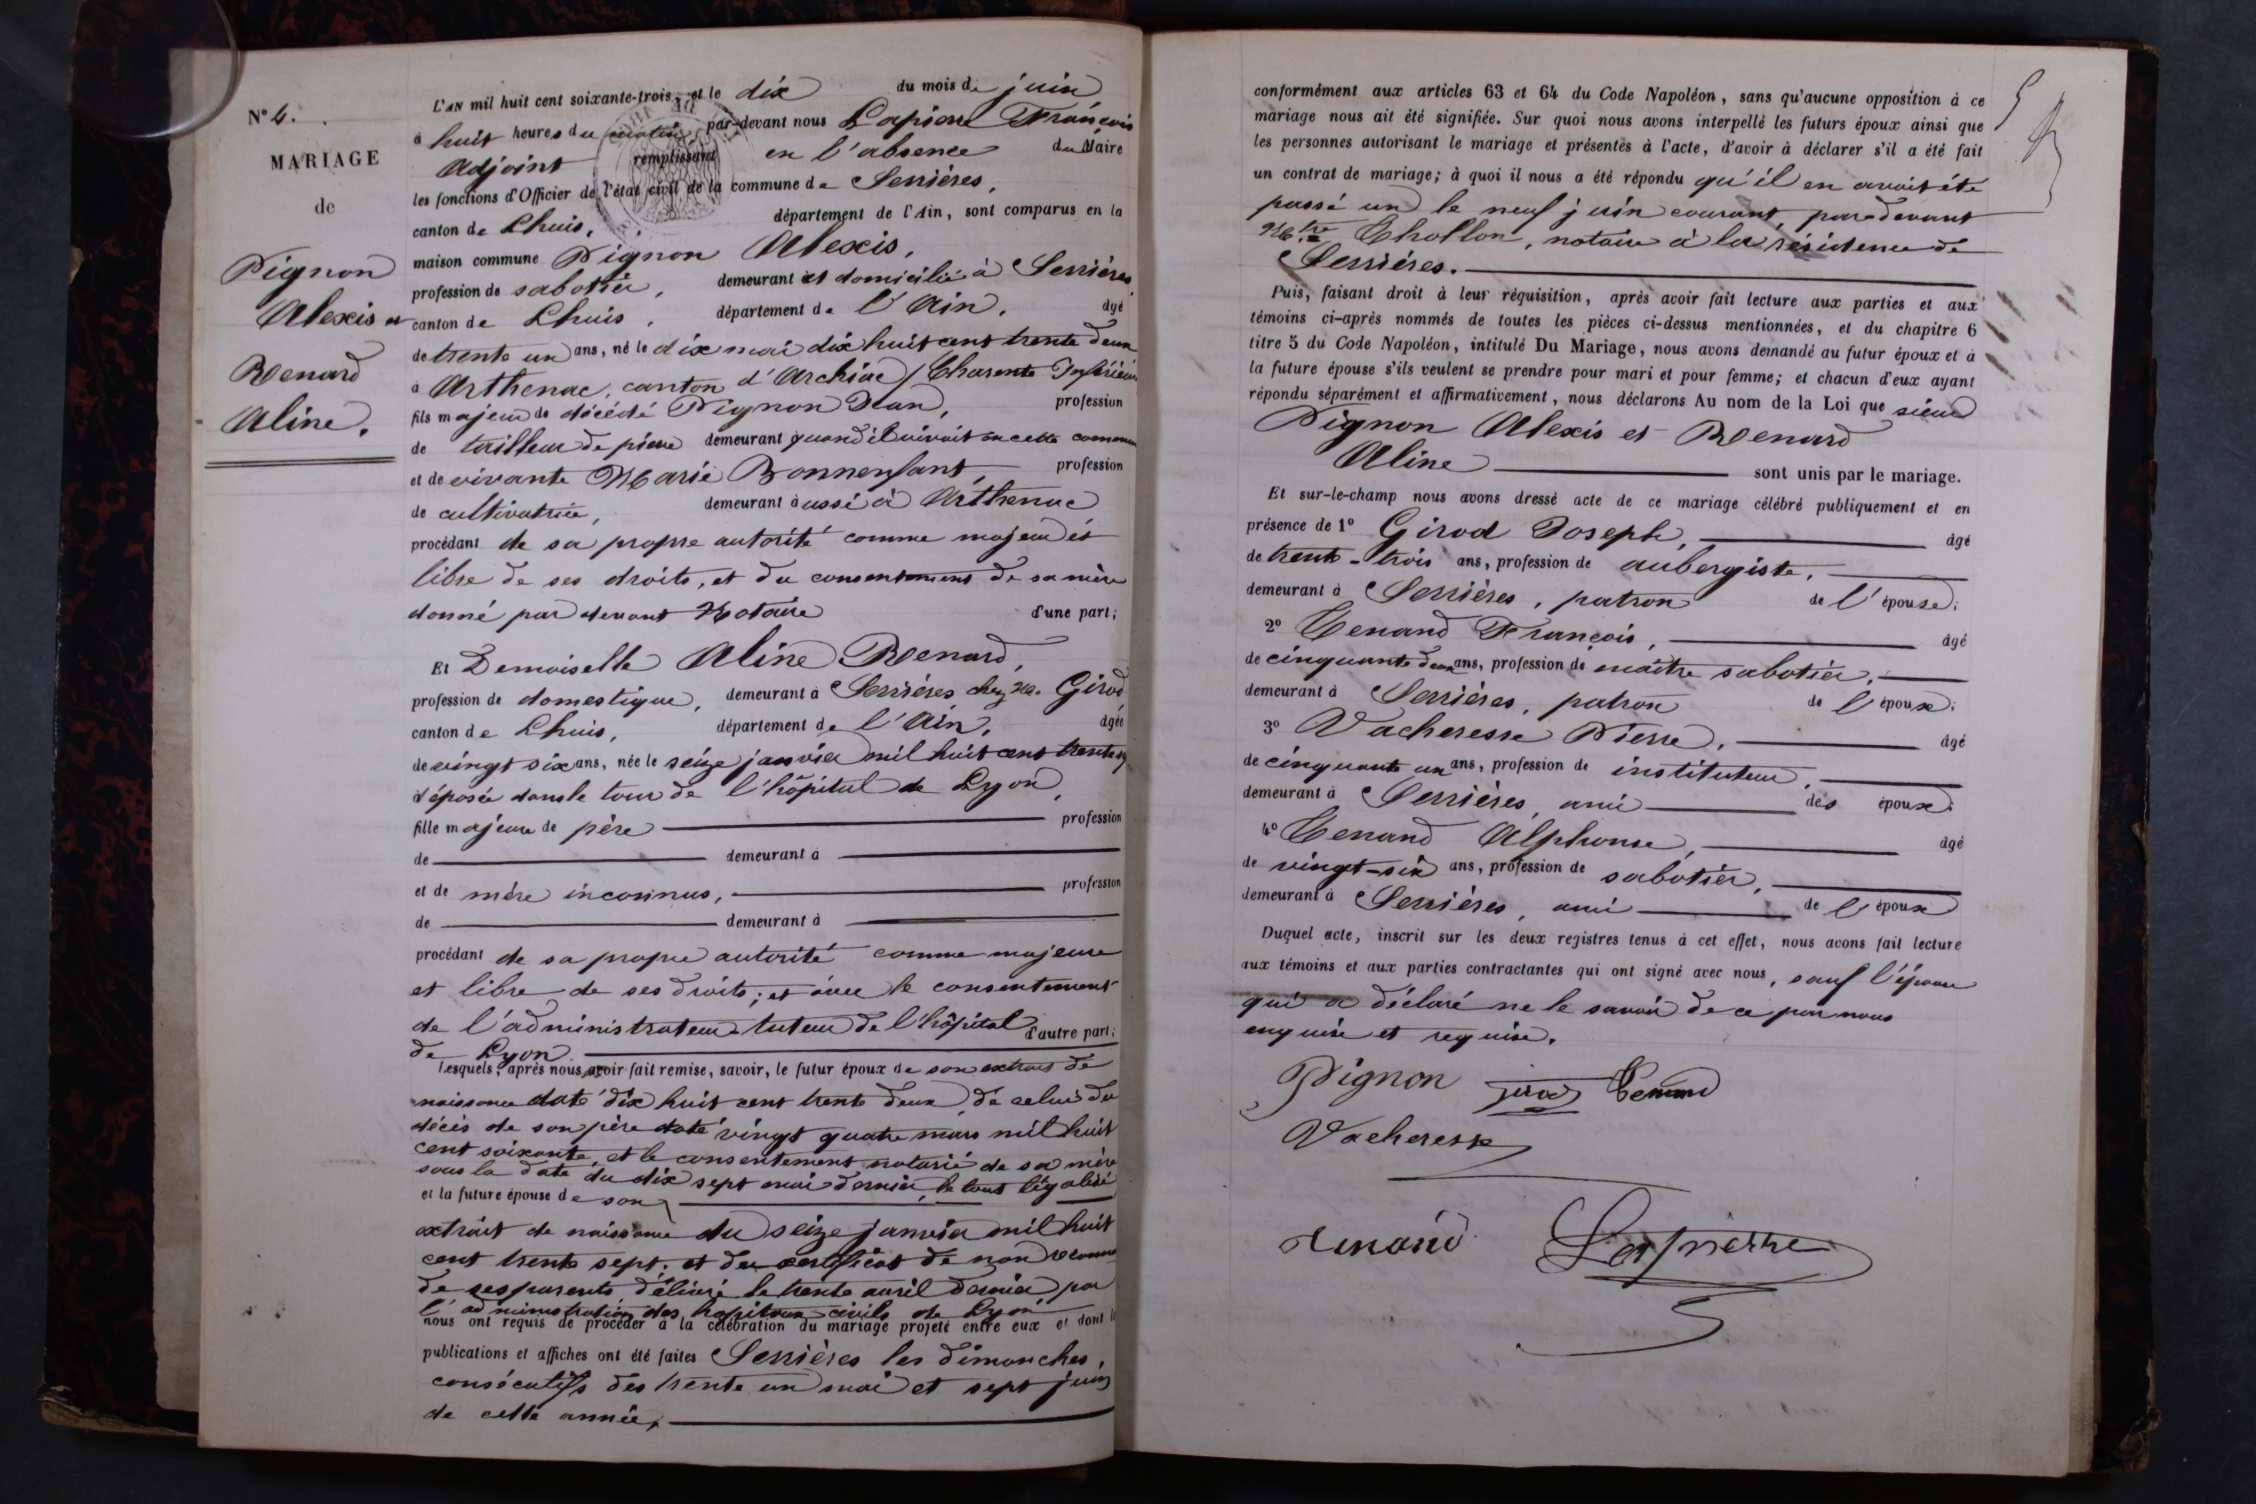 N° 4.
MARIAGE
de
Pignon
Alexis et
Renard
Aline.
L'AN mil huit cent soixante-trois, et le dix du mois de juin
à huit heures du matin, par-devant nous Lapierre François
Adjoint remplissant en l'absence du Maire
les fonctions d'Officier de l'état civil de la commune de Serrières,
canton de Lhuis, département de l'Ain, sont comparus en la
maison commune Pignon Alexis,
profession de sabotier, demeurant et domicilié à Serrières,
canton de Lhuis, département de l'Ain. âgé
de trente un ans, né le dix mai dix huit cent trente deux
à Arthenac, canton d'Archiac (Charente Inférieure
fils majeur de décédé Pignon Jean, profession
de tailleur de pierre demeurant quand il vivait en cette commune
et de vivante Marie Bonnenfant, profession
de cultivatrice, demeurant à aussi à Arthenac
procédant de sa propre autorité comme majeur et
libre de ses droits, et du consentement de sa mère
donné par devant Notaire d'une part;
Et Demoiselle Aline Renard,
profession de domestique, demeurant à Serrières chez M. Girod
canton de Lhuis, département de l'Ain, âgée
de vingt six ans, née le seize janvier mil huit cent trente sept
déposée dans le tour de l'hôpital de Lyon,
fille majeure de père profession
de demeurant à
et de mère inconnus, profession
de demeurant à
procédant de sa propre autorité comme majeure
et libre de ses droits; et avec le consentement
de l'administrateur tuteur de l'hôpital d'autre part;
de Lyon
Lesquels, après nous avoir fait remise, savoir, le futur époux de son extrait de
naissance daté dix huit cent trente deux, de celui du
décès de son père daté vingt quatre mars mil huit
cent soixante, et le consentement notarié de sa mère
sous la date du dix sept mai dernier, le tout légalisé
et la future épouse de son
extrait de naissance du seize janvier mil huit
cent trente sept. et du certificat de non reconnu
de ses parents délivré le trente avril dernier par
l'administration des hôpitaux civils de Lyon
nous ont requis de procéder à la célébration du mariage projeté entre eux et dont les
publications et affiches ont été faites Serrières les dimanches,
consécutifs des trente un mai et sept juin
de cette année,
5
conformément aux articles 63 et 64 du Code Napoléon, sans qu'aucune opposition à ce
mariage nous ait été signifiée. Sur quoi nous avons interpellé les futurs époux ainsi que
les personnes autorisant le mariage et présentés à l'acte, d'avoir à déclarer s'il a été fait
un contrat de mariage; à quoi il nous a été répondu qu'il en avait été
passé un le neuf juin courant, par devant
Mtre Chollon, notaire à la résidence de
Serrières.
Puis, faisant droit à leur réquisition, après avoir fait lecture aux parties et aux
témoins ci-après nommés de toutes les pièces ci-dessus mentionnées, et du chapitre 6
titre 5 du Code Napoléon, intitulé Du Mariage, nous avons demandé au futur époux et à
la future épouse s'ils veulent se prendre pour mari et pour femme; et chacun d'eux ayant
répondu séparément et affirmativement, nous déclarons Au nom de la Loi que sieur
Pignon Alexis et Renard
Aline sont unis par le mariage.
Et sur-le-champ nous avons dressé acte de ce mariage célébré publiquement et en
présence de 1° Girod Joseph, âgé
de trente-trois ans, profession de aubergiste,
demeurant à Serrières, patron de l'épouse;
2° Tenand François, âgé
de cinquante deux ans, profession de maître sabotier,
demeurant à Serrières, patron de l'époux;
3° Vacheresse Pierre, âgé
de cinquante un ans, profession de instituteur,
demeurant à Serrières, ami des époux;
4° Tenand Alphonse, âgé
de vingt-six ans, profession de sabotier,
demeurant à Serrières, ami de l'époux
Duquel acte, inscrit sur les deux registres tenus à cet effet, nous avons fait lecture
aux témoins et aux parties contractantes qui ont signé avec nous, sauf l'épouse
qui a déclaré ne le savoir de ce par nous
enquise et requise.
Pignon Girod Tenand
Vacheresse
Tenand Lapierre